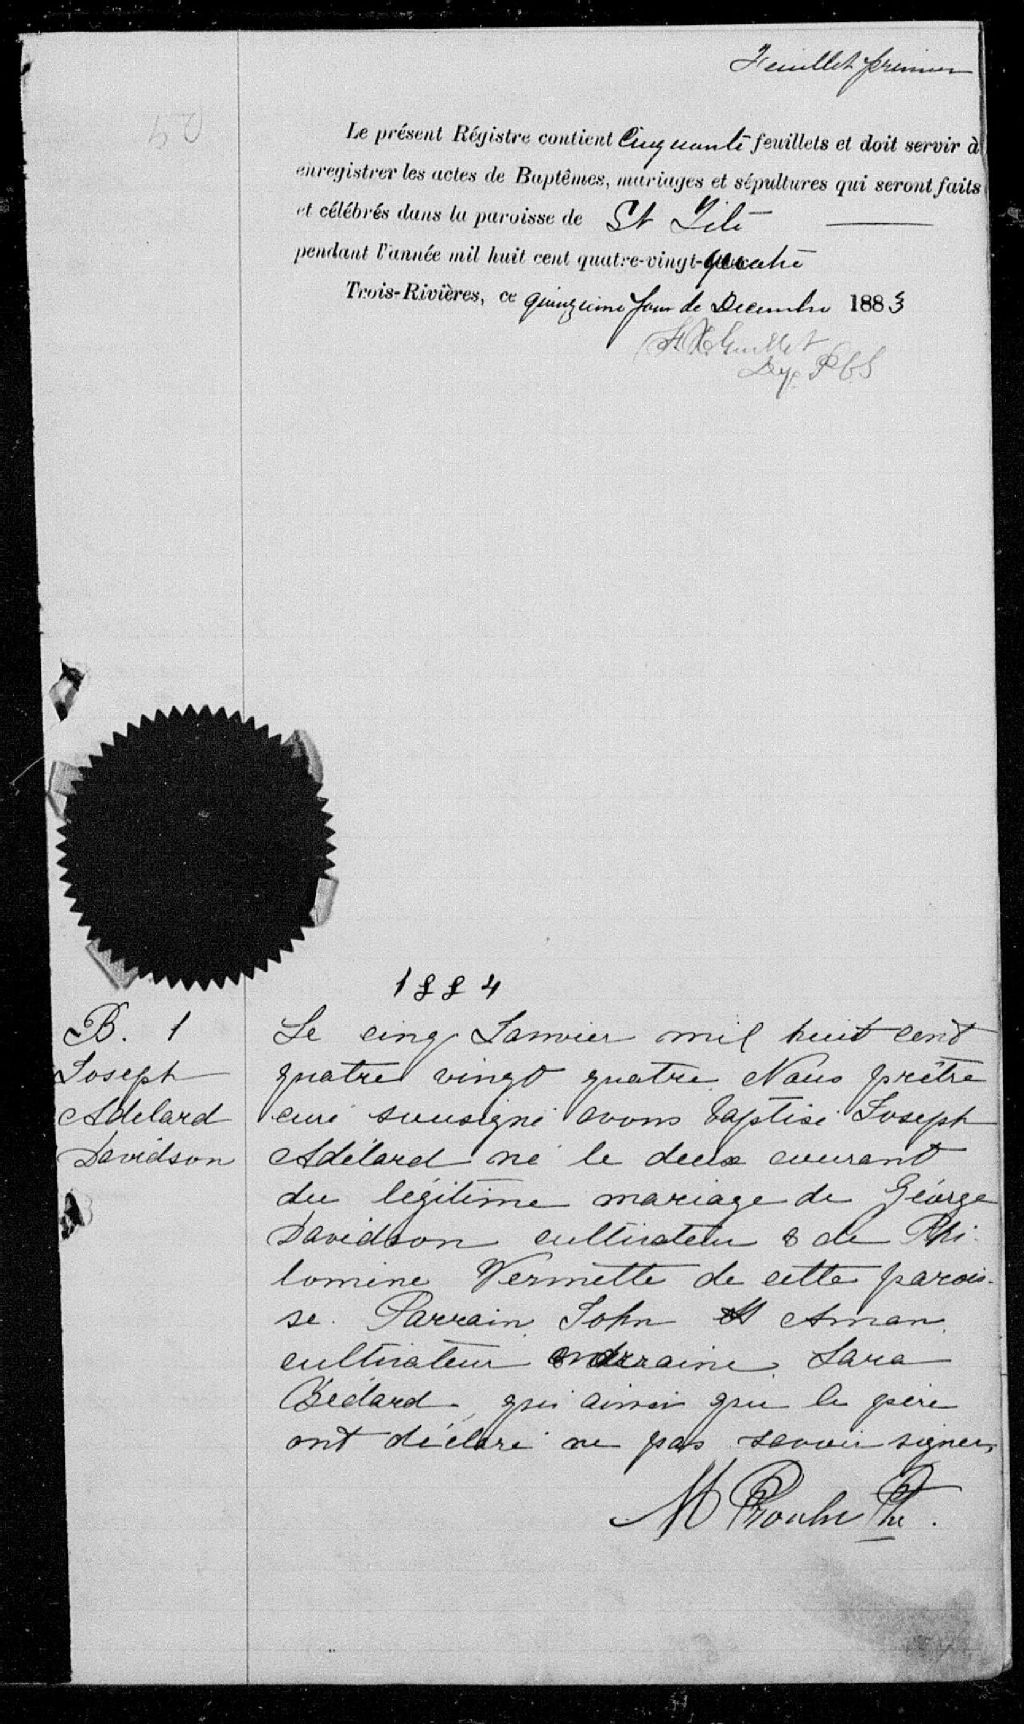 Feuillet premier
Le présent Régistre contient Cinquante feuillets et doit servir à
enregistrer les actes de Baptêmes, mariages et sépultures qui seront faits
et célébrés dans la paroisse de St Tite
pendant l'année mil huit cent quatre-vingt-quatre
Trois-Rivières, ce quinzieme jour de Decembre 1883
Guillet
Dep P C S
1884
B. 1
Joseph
Adelard
Davidson
Le cinq Janvier mil huit cent
quatre vingt quatre Nous prêtre
curé sousigné avons baptisé Joseph
Adélard né le deux courant
du légitime mariage de George
Davidson cultivateur & de Phi-
lomène Vermette de cette parois-
se. Parrain John St Aman
cultivateur marraine Sara
Bédard qui ainsi que le père
ont déclaré ne pas savoir signer,
M Proulx Ptre.